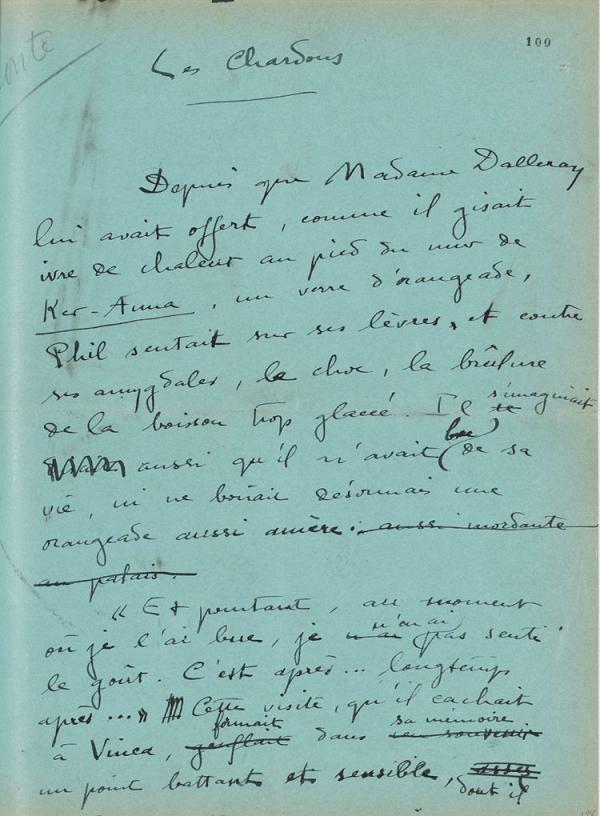 100
Les Chardons
Depuis que Madame Dalleray
lui avait offert, comme il gisait
ivre de chaleur au pied du mur de
Ker-Anna, un verre d'orangeade,
Phil sentait sur ses lèvres, et contre
ses amygdales, le choc, la brûlure
de la boisson trop glacée. Il s'imaginait
aussi qu'il n'avait bu de sa
vie, ni ne boirait désormais une
orangeade aussi amère. aussi mordante
au palais.
« Et pourtant, au moment
où je l'ai bue, je n'en ai pas senti
le goût. C'est après... longtemps
après...» Cette visite, qu'il cachait
à Vinca, formait gonflait dans sa mémoire son souvenir
un point battant et sensible, assez dont il